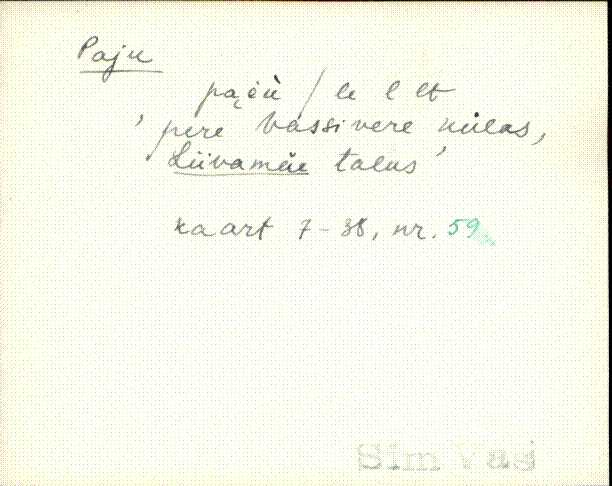 Paju
pąèù / le l lt
'pere Vassivere külas,
Liivamäe talus'
kaart 7-38, nr. 59
Sim Vas